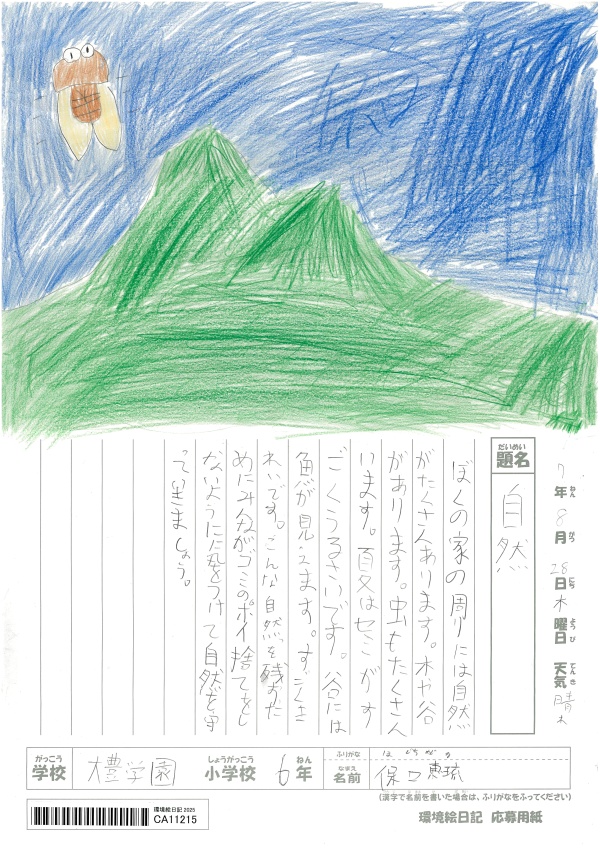 7年8月28日木曜日 天気晴れ
ねん がつ にち ようび てんき
だいめい
題名
自然
ぼくの家の周りには自然
がたくさんあります。木や谷
があります。虫もたくさん
います。夏はセミがす
ごくうるさいです。谷には
魚が見えます。すごくき
れいです。こんな自然を残すた
めにみんながゴミのポイ捨てをし
ないように気をつけて自然を守
っていきましょう。
がっこう しょうがっこう ねん ふりがな
学校 学園 小学校 6年 なまえ 名前 保口恵琉
(漢字で名前を書いた場合は、ふりがなをふってください)
環境絵日記 2025
CA11215
環境絵日記 応募用紙